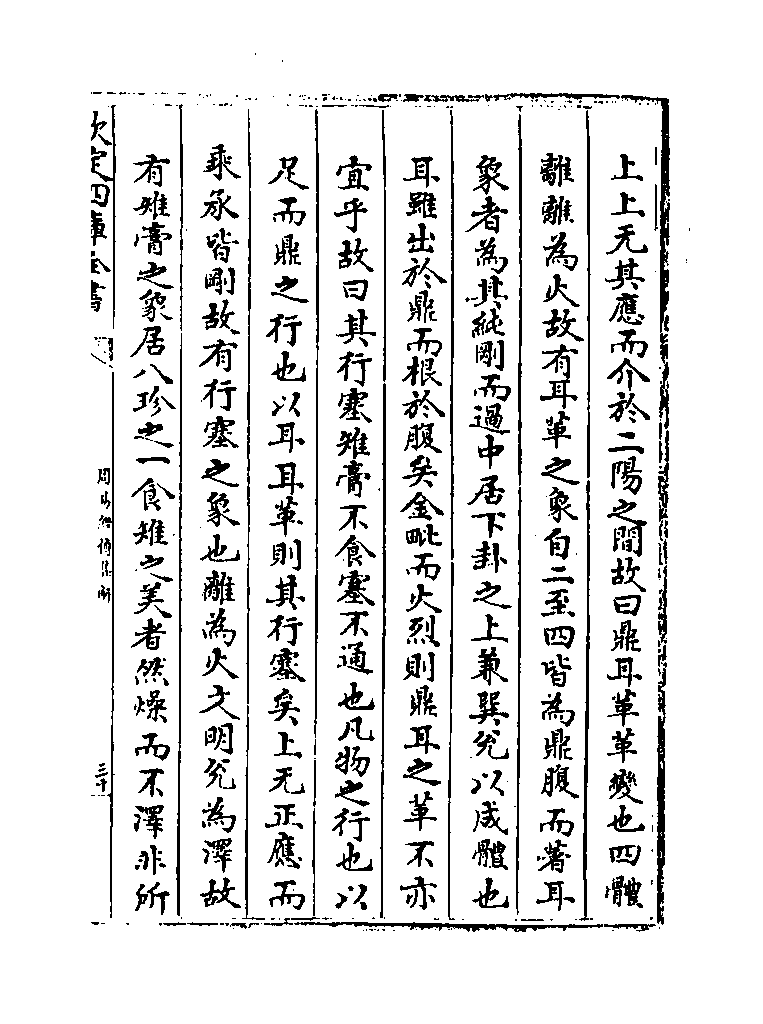 上上无其應而介於二陽之間故曰鼎耳革革變也四體
離離為火故有耳革之象自二至四皆為鼎腹而著耳
象者為其純剛而過中居下卦之上兼巽兌以成體也
耳雖出於鼎而根於腹矣金毗而火烈則鼎耳之革不亦
宜乎故曰其行塞雉膏不食塞不通也凡物之行也以
足而鼎之行也以耳耳革則其行塞矣上无正應而
乘承皆剛故有行塞之象也離為火文明兌為澤故
有雉膏之象居八珍之一食雉之美者然燥而不澤非所
欽定四庫全書
周易經傳集解
三十